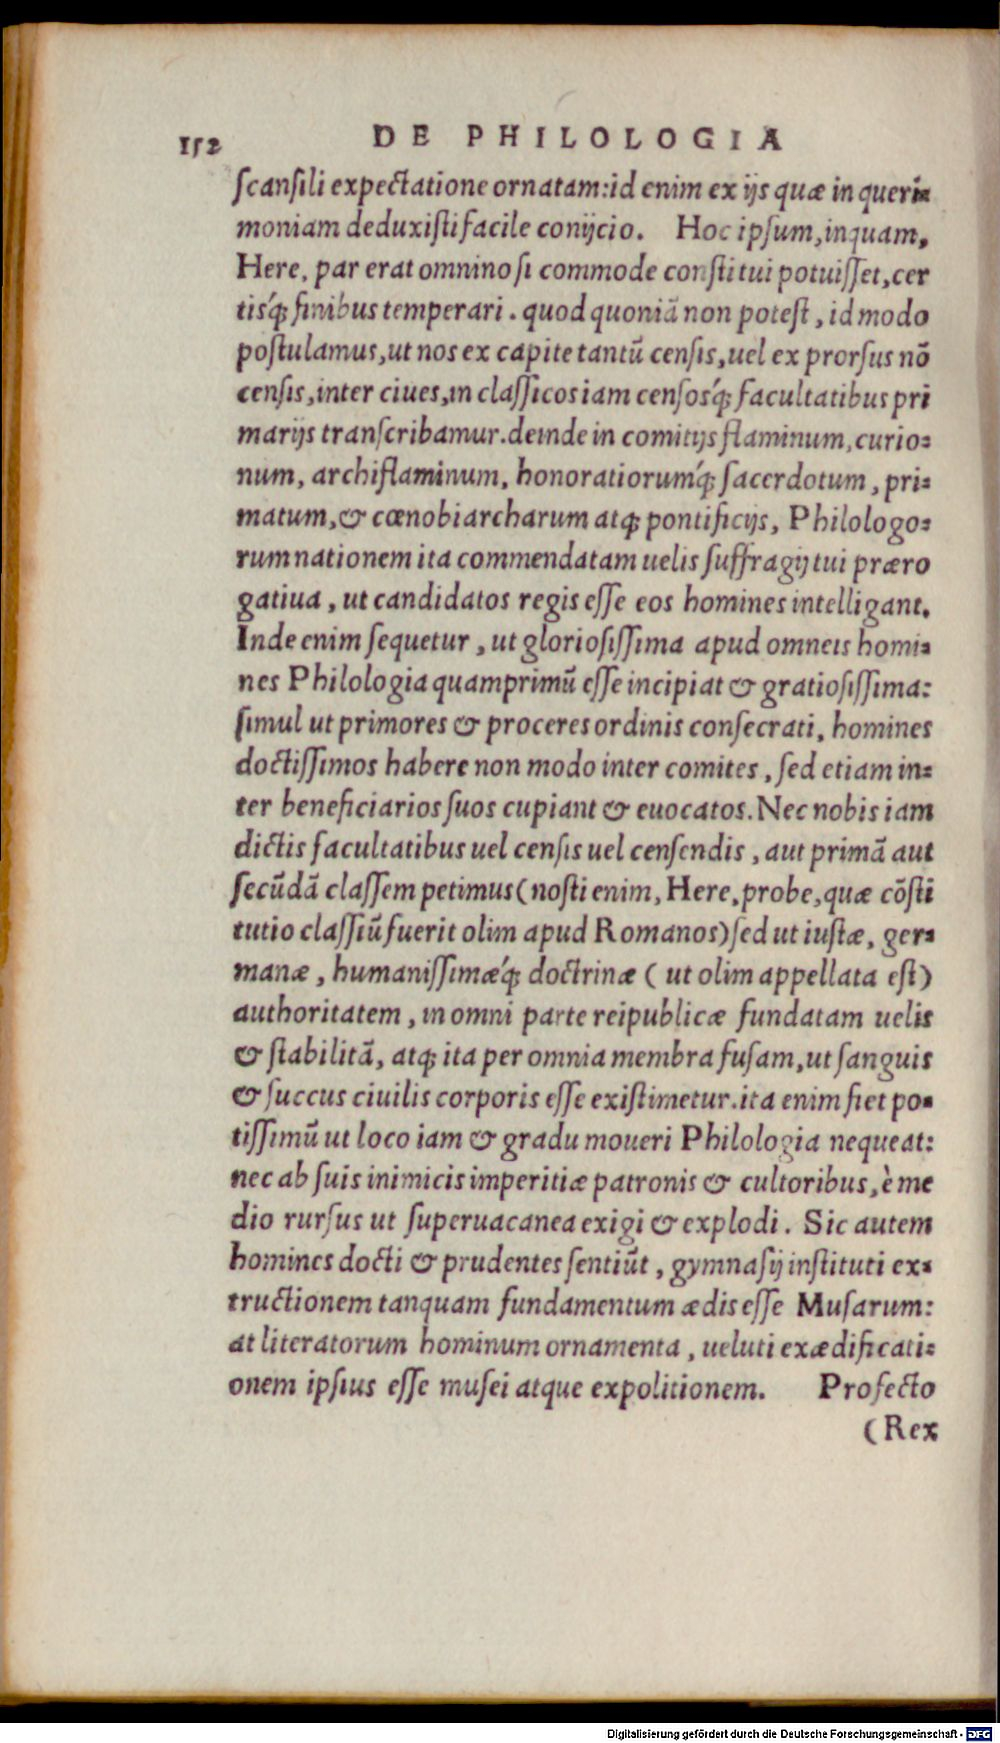 152 DE PHILOLOGIA
ſcanſili expectatione ornatam:id enim ex ijs quæ in queri⸗
moniam deduxiſti facile conijcio. Hoc ipſum,inquam,
Here, par erat omnino ſi commode conſtitui potuiſſet,cer
tisq́ꝫ finibus temperari. quod quoniã non poteſt, id modo
poſtulamus,ut nos ex capite tantũ cenſis,uel ex prorſus nõ
cenſis,inter ciues,in claſſicos iam cenſosq́ꝫ facultatibus pri
marijs tranſcribamur.deinde in comitijs flaminum,curio⸗
num, archiflaminum, honoratiorumq́ꝫ ſacerdotum, pri⸗
matum,& cœnobiarcharum atqꝫ pontificijs, Philologo⸗
rum nationem ita commendatam uelis ſuffragij tui præro
gatiua, ut candidatos regis eſſe eos homines intelligant.
Inde enim ſequetur, ut glorioſiſſima apud omneis homi⸗
nes Philologia quamprimũ eſſe incipiat & gratioſiſſima:
ſimul ut primores & proceres ordinis conſecrati, homines
doctiſſimos habere non modo inter comites, ſed etiam in⸗
ter beneficiarios ſuos cupiant & euocatos. Nec nobis iam
dictis facultatibus uel cenſis uel cenſendis, aut primã aut
ſecũdã claſſem petimus(noſti enim, Here,probe,quæ cõſti
tutio claſſiũ fuerit olim apud Romanos)ſed ut iuſtæ, ger⸗
manæ, humaniſſimæq́ꝫ doctrinæ ( ut olim appellata eſt)
authoritatem, in omni parte reipublicæ fundatam uelis
& ſtabilitã, atqꝫ ita per omnia membra fuſam,ut ſanguis
& ſuccus ciuilis corporis eſſe exiſtimetur.ita enim fiet po⸗
tiſſimũ ut loco iam & gradu moueri Philologia nequeat:
nec ab ſuis inimicis imperitiæ patronis & cultoribus,è me
dio rurſus ut ſuperuacanea exigi & explodi. Sic autem
homines docti & prudentes ſentiũt, gymnaſij inſtituti ex⸗
tructionem tanquam fundamentum ædis eſſe Muſarum:
at literatorum hominum ornamenta, ueluti exædificati⸗
onem ipſius eſſe muſei atque expolitionem. Profecto
(Rex
Digitalisierung gefördert durch die Deutsche Forschungsgemeinschaft - DFG